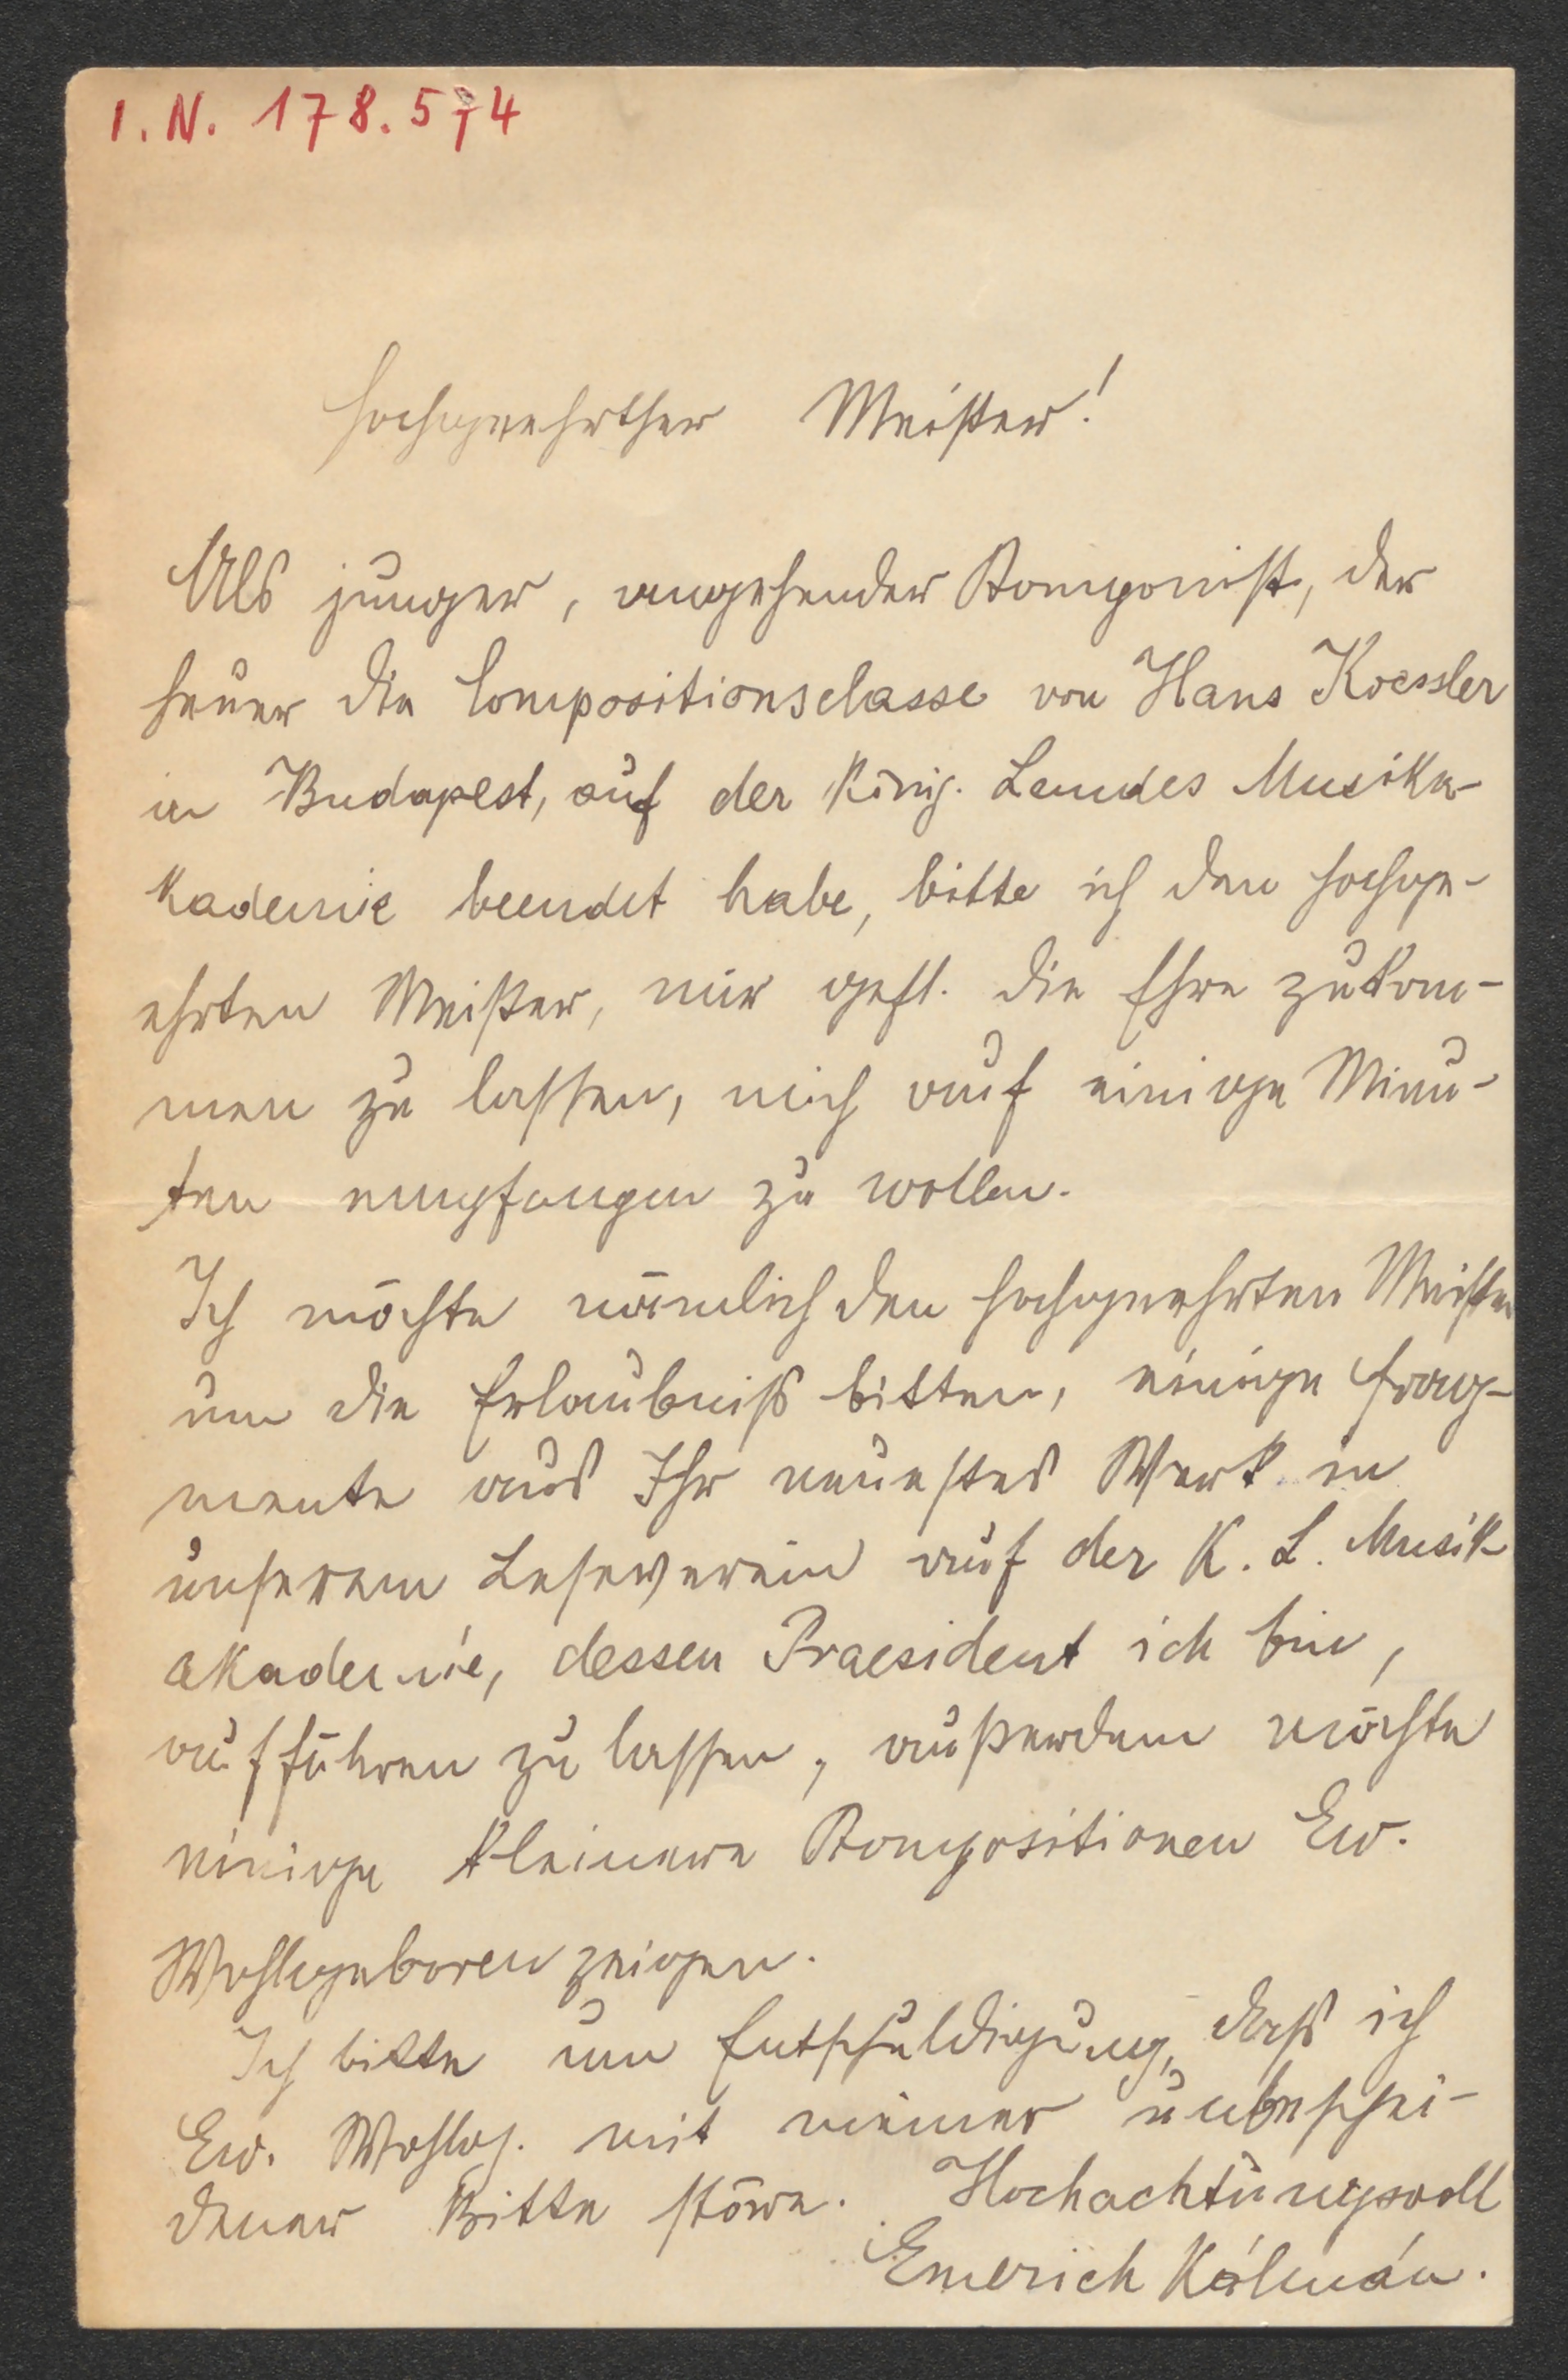 I. N. 178.574
Hochgeehrther Meister!
Als junger, angehender Komponist, der
heuer die Compositionsclasse von Hans Koessler
in Budapest, auf der König. Landes Musika-
kademie beendet habe, bitte ich den hochge-
ehrten Meister, mir gefl. die Ehre zukom-
men zu lassen, mich auf einige Minu-
ten empfangen zu wollen.
Ich möchte nämlich den hochgeehrten Meister
um die Erlaubniß bitten, einige Frag-
mente aus Ihr neuestes Werk in
unserem Leseverein auf der K. L. Musik
akademie, dessen Praesident ich bin,
aufführen zu lassen, außerdem möchte
einige kleinere Kompositionen Ew.
Wohlgeboren zeigen.
Ich bitte um Entschuldigung, daß ich
Ew. Wohlg. mit meiner unbeschei-
dener Bitte störe. Hochachtungsvoll
Emerich Kálmán.